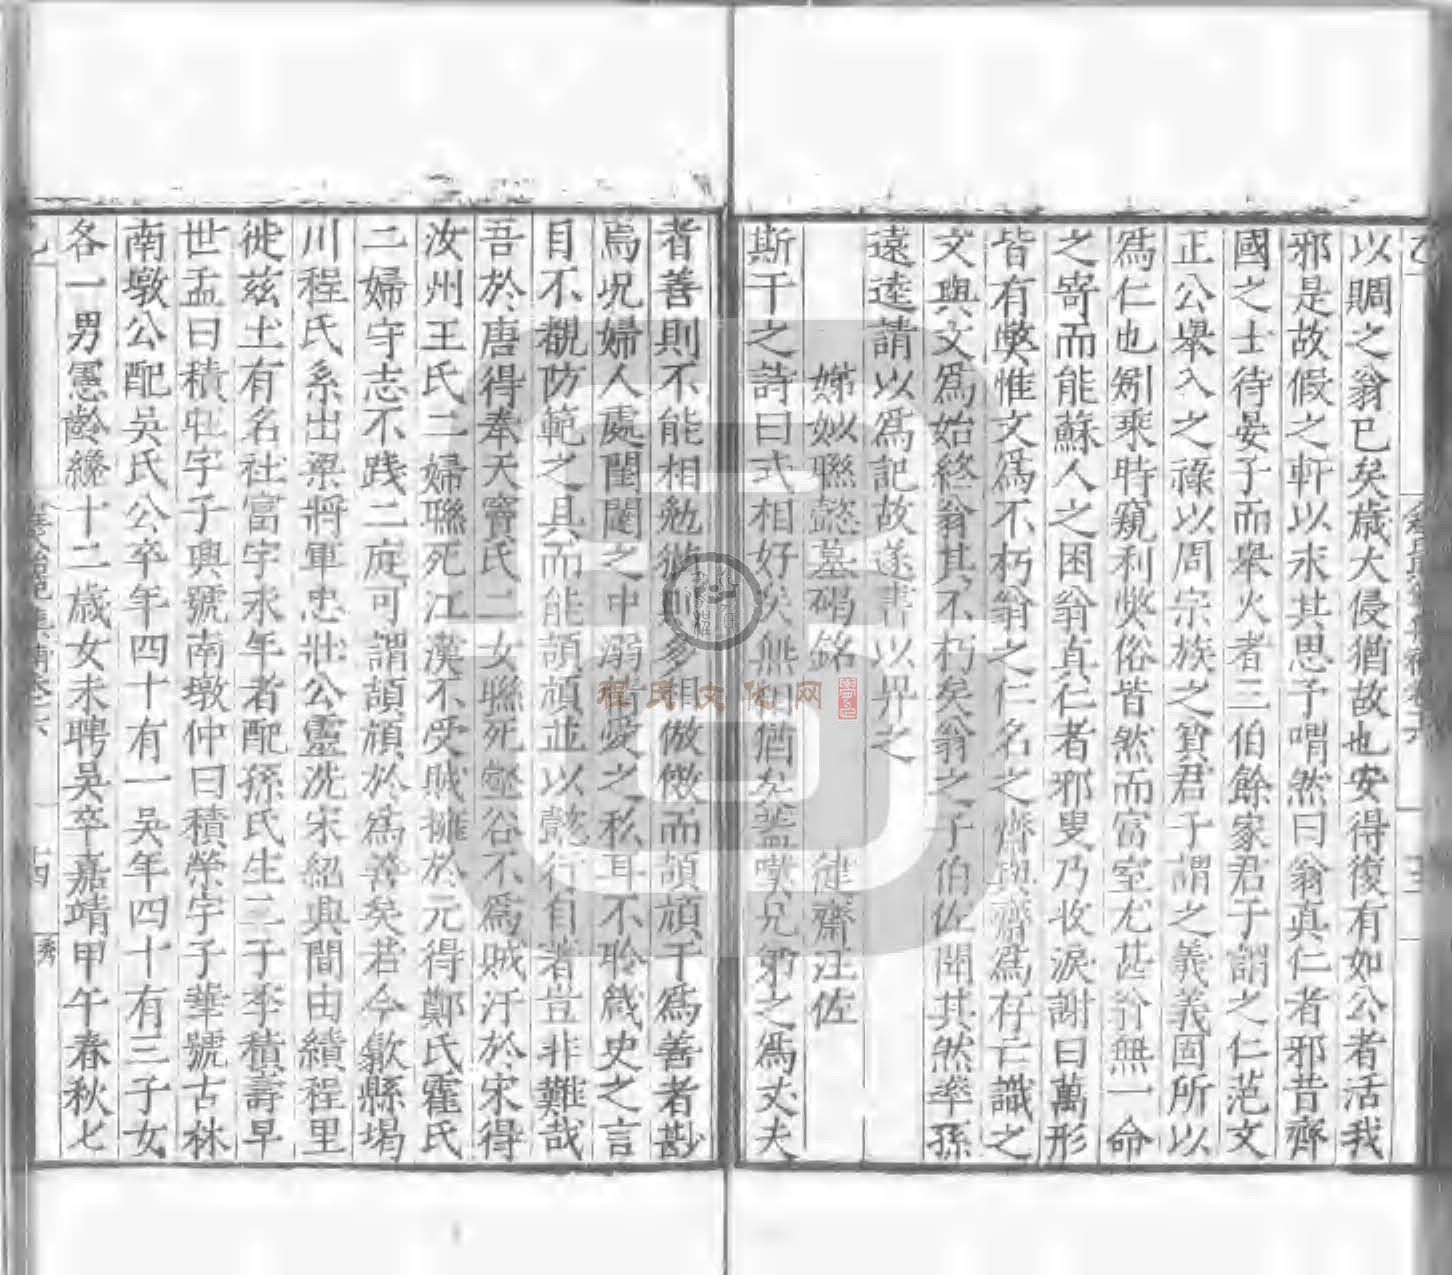 以賙之翁已矣歲大侵猶故也安得復有如公者活我
邪是故假之軒以求其思予喟然曰翁真仁者邪昔齊
國之士待晏子而舉火者三伯餘家君子謂之仁范文
正公舉入之祿以周宗族之貧君子謂之義義固所以
爲仁也矧乘時窺利獘俗皆然而富室尤甚訡無一命
之寄而能蘇人之困翁真仁者邪叟乃收淚謝曰萬形
皆有獘惟文爲不朽翁之仁名之齋與齋爲存亡識之
文與文爲始終翁其不朽矣翁之子伯佐聞其然率孫
遠逵請以爲記故遂書以畀之
娣姒聯懿墓碣銘 健齋汪佐
斯干之詩曰式相好矣無相猶矣蓋嘆兄弟之爲丈夫
者善則不能相勉彼則多相倣傚而頡頏于爲善者尠
焉况婦人處閨閫之中溺情愛之私耳不聆箴史之言
目不覩防範之具而能頡頏並以懿行自著豈非難哉
吾於唐得奉天竇氏二女聯死壑谷不爲賊汙於宋得
汝州王氏二婦聯死江漢不受賊擁於元得鄭氏霍氏
二婦守志不踐二庭可謂頡頏於爲善矣若今歙縣堨
川程氏系出梁將軍忠壯公靈洗宋紹興間由績程里
徙兹土有名社富字永年者配孫氏生二子李積壽早
世孟曰積 字子輿號南墩仲曰積榮字子華號古林
南墩公配吳氏公卒年四十有一吳年四十有三子女
各一男憲齡纔十二歲女未聘吳卒嘉靖甲午春秋七
十四